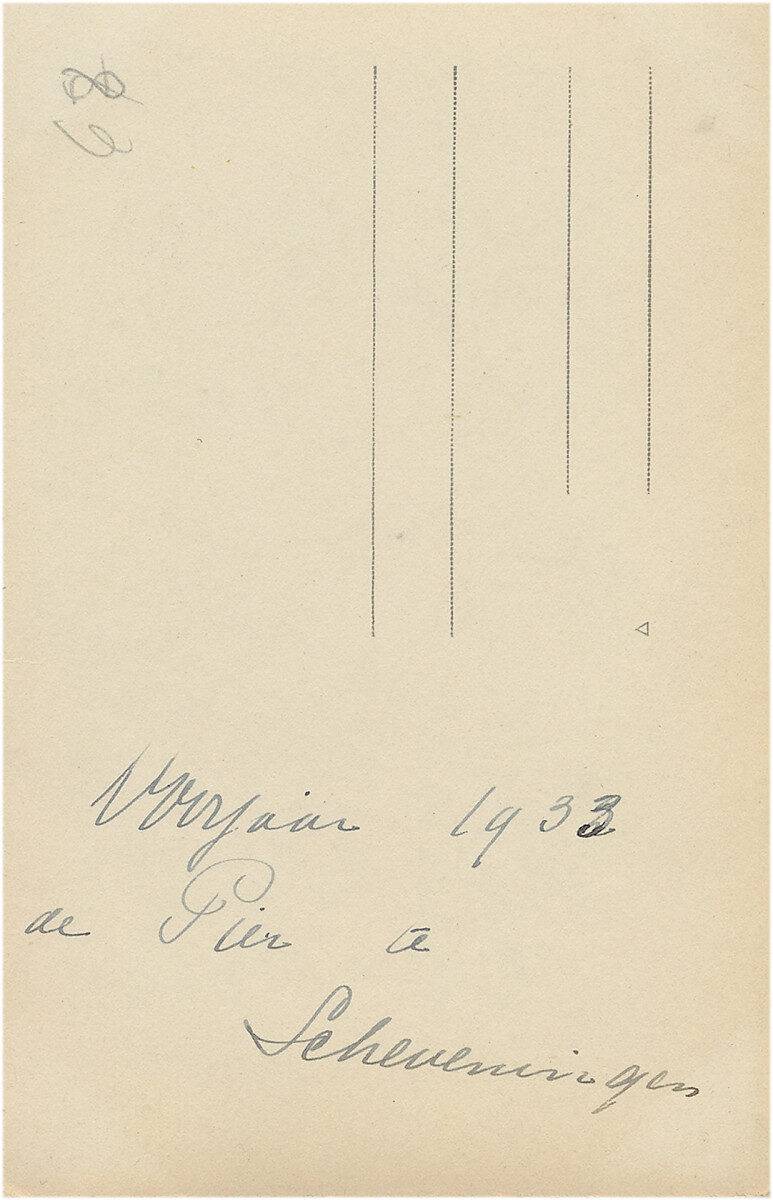 Voorjaar 1933
de Pier te
Scheveningen